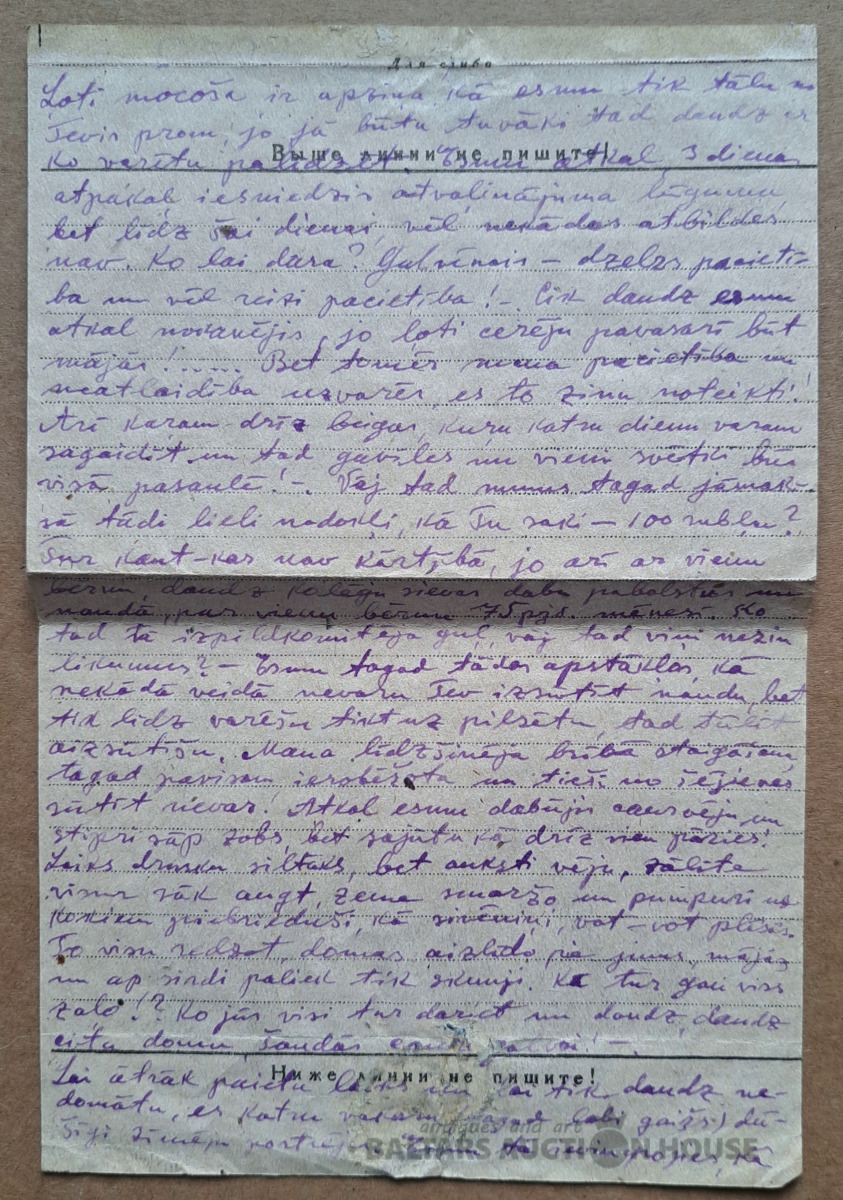 Для слибо
Ļoti mocoša ir apziņa, kā esmu tik tālu no
Tevis prom, jo ja būtu tuvāki tad daudz ar
Выше линии не пишите!
ko varētu palīdzēt. Esmu atkal 3 dienas
atpakaļ iesniedzis atvaļinājuma lūgumu,
bet līdz šai dienai, vēl nekādas atbildes
nav. Ko lai dara? Galvenais – dzelzs pacietī-
ba un vēl reizi pacietība! – Cik daudz esmu
atkal nokavējis, jo ļoti cerēju pavasarī būt
mājās!..... Bet tomēr mana pacietība un
neatlaidība uzvarēs, es to zinu noteikti!
Arī karam drīz beigas, kuru katru dienu varam
sagaidīt un tad gavilēs un vieni svētki būs
visā pasaulē! –. Vaj tad mums tagad jāmak-
sā tādi lieli nodokļi, kā Tu saki – 100 rubļu?
Tur kaut-kas nav kārtībā, jo arī ar vienu
bērnu, daudz kolēģu sievas dabū pabalstus un
naudā, par vienu bērnu 75 rbļ. mēnesī. Ko
tad tā izpildkomiteja guļ, vaj tad viņi nezin
likumus? – Esmu tagad tādos apstākļos, kā
nekādā veidā nevaru Tev izsūtīt naudu, bet
tik līdz varēšu tikt uz pilsētu, tad tūlīt
aizsūtīšu. Mana līdzšinējā brīvā staigāšana
tagad pavisam ierobežota un tieši no šejienes
sūtīt nevar! Atkal esmu dabūjis caurvēju un
stipri sāp zobs, bet sajūtu kā drīz vien pāries!
Laiks drusku siltāks, bet auksti vēji, zālīte
visur sāk augt, zeme smaržo un pumpuri uz
kokiem piebrieduši, kā sivēniņi, vot-vot plīsīs.
To visu redzot, domas aizlido pie jums, mājās
un ap sirdi paliek tik skumji. Kā tur gan viss
zaļo!? Ko jūs visi tur dariet un daudz, daudz
citu domu šaudās galvā! –.
Ниже линии не пишите!
Lai ātrāk paietu laiks un lai tik daudz ne-
domātu, es katru vakaru (tagad labi gaišs) dū-
šīgi zīmēju Esmu tā kā
antiques and art
BALTARS AUCTION HOUSE